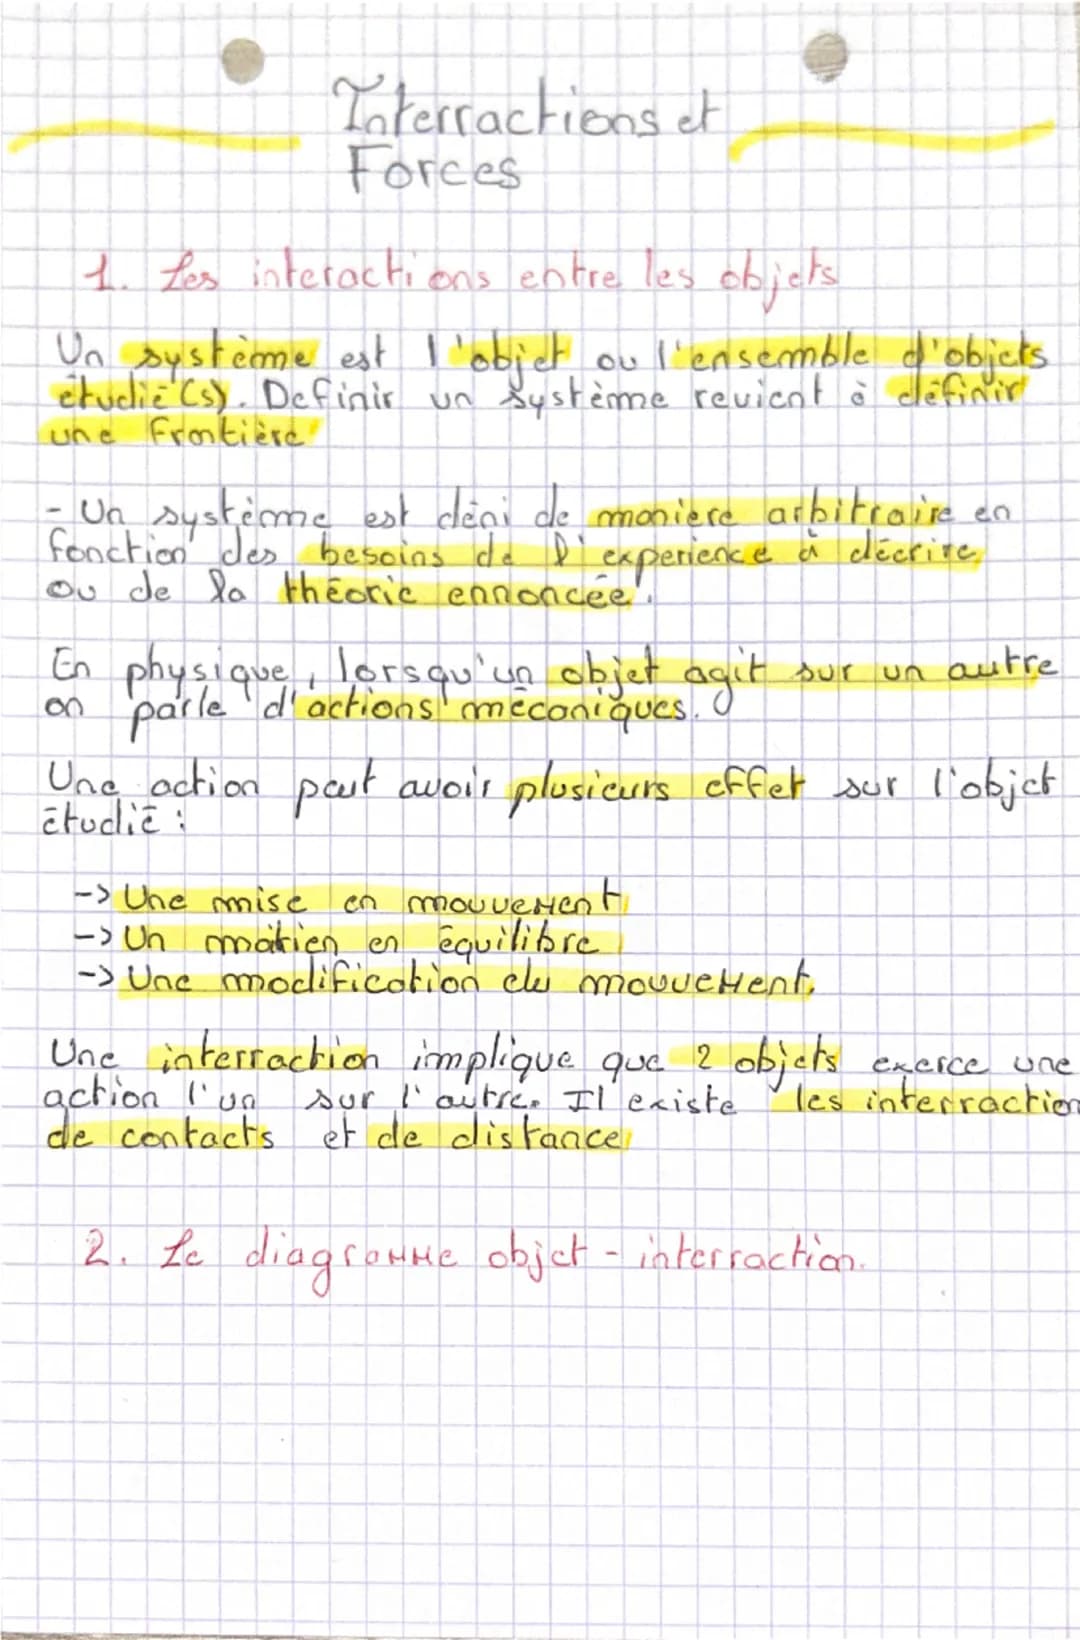 Interractions et
Forces
1. Les interactions entre les objets
Un système est l'objet ou l'ensemble d'objets
étudié(s). Definir un système revient à définir
une frontière
- Un système est déni de maniere arbitraire en
fonction des besoins de l'experience à décrire
ou de la théorie ennoncée.
En physique, lorsqu'un objet agit sur un autre
on parle d'actions mécaniques.
Une action peut avoir plusieurs effet sur l'objet
étudié :
-> Une mise en mouvement
-> Un maitien en équilibre
-> Une modification du mouvement.
Une interraction implique que 2 objets exerce une
action l'un sur l'autre. Il existe les interraction
de contacts et de distance
2. Le diagramme objet - interraction.